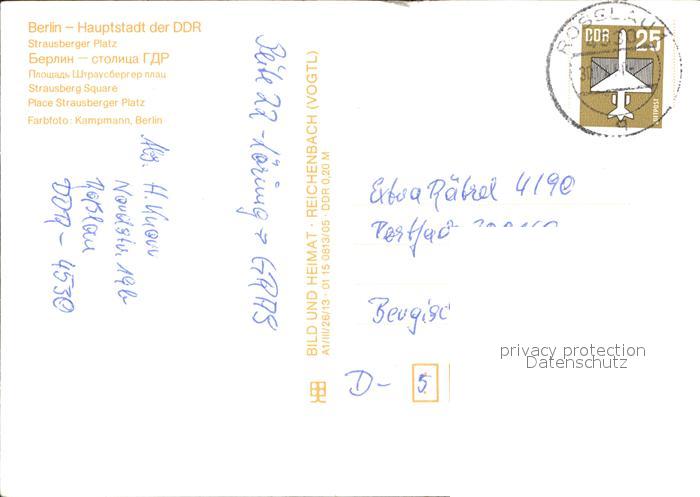 Berlin – Hauptstadt der DDR
Strausberger Platz
Берлин — столица ГДР
Площадь Штраусбергер плац
Strausberg Square
Place Strausberger Platz
Farbfoto: Kampmann, Berlin
Seite 22 - Lösung = GRAS
Abs. H.
Nordstr. 19b
Roßlau
DDR - 4530
BILD UND HEIMAT · REICHENBACH (VOGTL)
A1/III/26/13 · 01 15 0813/05 · DDR 0,20 M
ROSSLAU
DDR 25
LUFTPOST
Extra Rätsel 4/90
Postfach
D- 5
privacy protection
Datenschutz